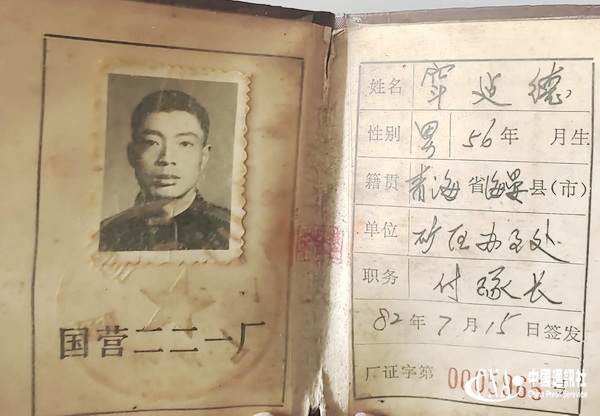 国营二二一厂
姓名 窜延德
性别 男 56年 月生
籍贯 青海省海晏县(市)
单位 矿区办事处
职务 付琢长
82年7月15日签发
厂证字第
中国通讯社
China Press Service